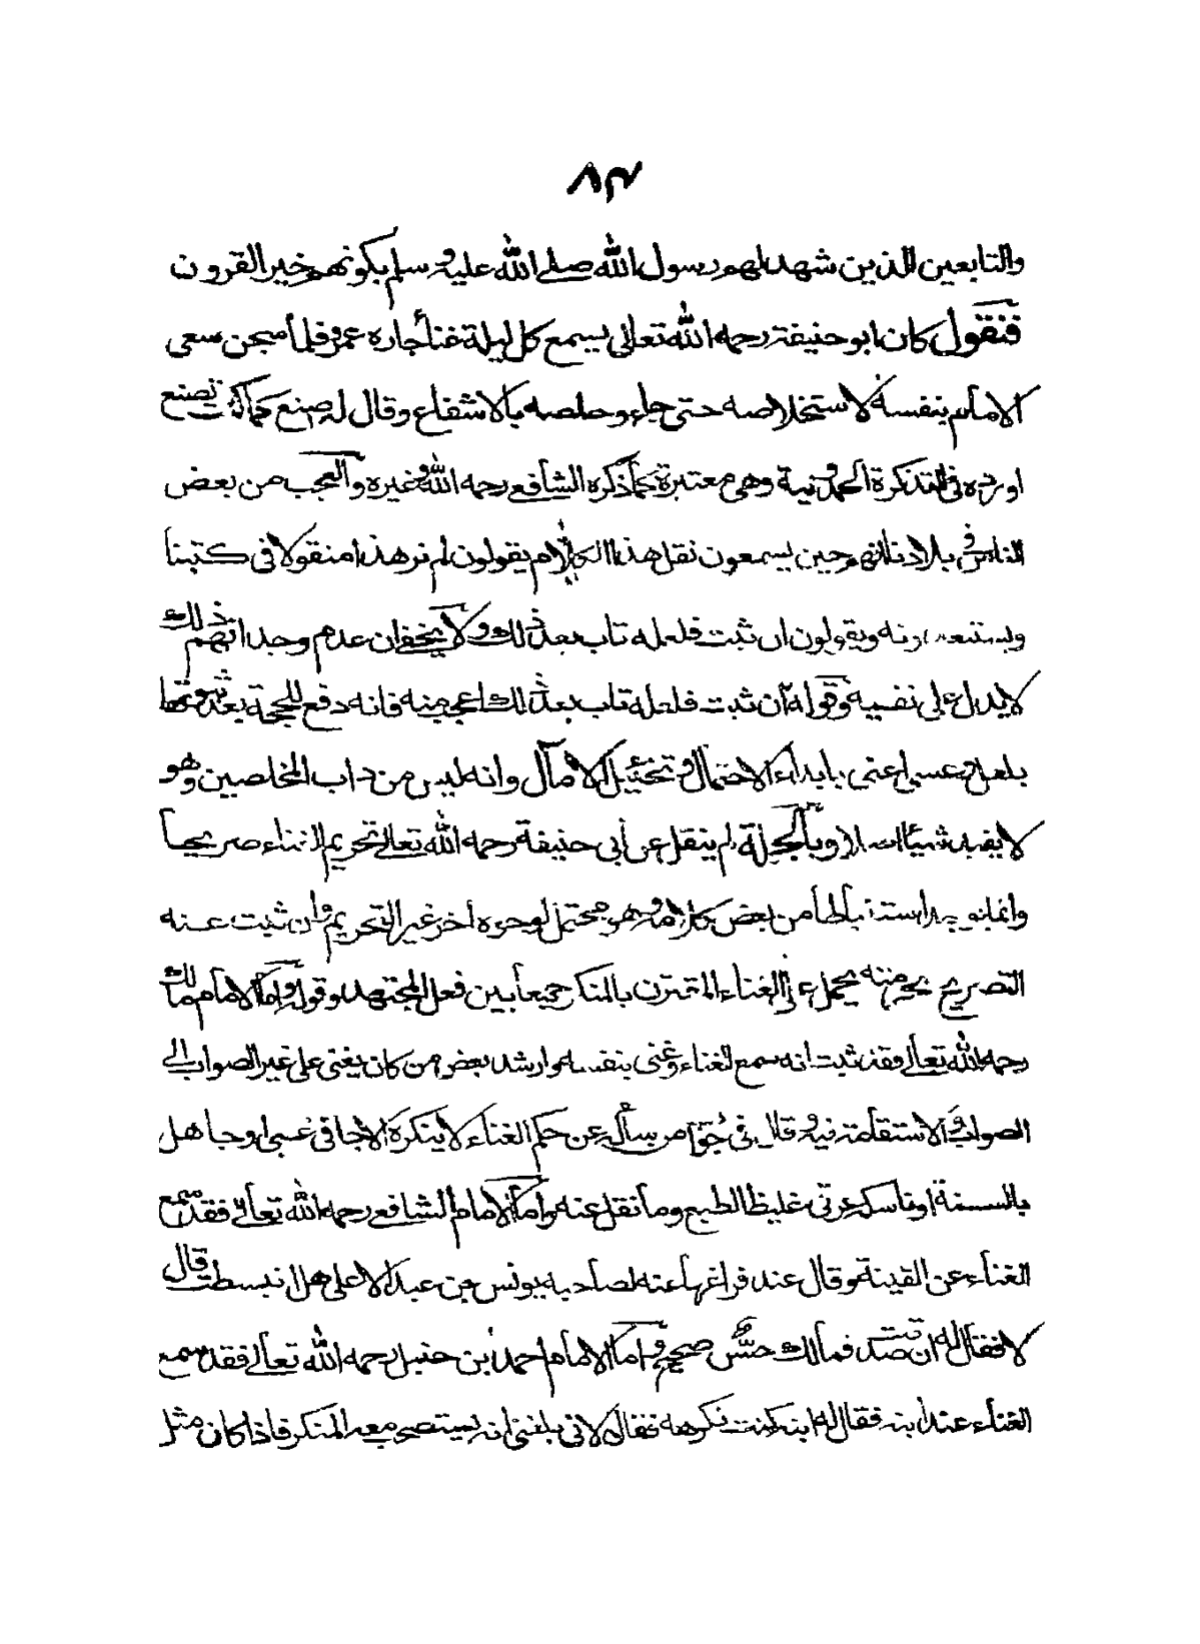 ٨٣
والتابعين الذين شهد لهم رسول الله صلى الله عليه وسلم بكونهم خير القرون
فنقول كان ابو حنيفة رحمه الله تعالى يسمع كل ليلة غنأ جاره عمرو فلما سجن سعى
الامام بنفسه لاستخلاصه حتى جاء وخلصه بالاشفاع وقال له صنع كما كنت تصنع
اورده في التذكرة الحمدونية وهي معتبرة كما ذكره الشافعي رحمه الله وغيره والعجب من بعض
الناس في بلادنا انهم حين يسمعون نقل هذا الكلام يقولون لم نر هذا منقولا في كتبنا
ويستبعدونه ويقولون ان ثبت فلعله تاب بعد ذلك ولا يخفى ان عدم وجدانهم ذلك
لا يدل على نفيه وقوله ان ثبت فلعله تاب بعد ذلك اعجب منه فانه دفع للحجة بعد ثبوتها
بلعل وعسى اعني بابداء الاحتمال وتخئيل الامآل وانه ليس من داب المخلصين وهو
لا يفيد شيئا اصلا وبالجملة لم ينقل عن أبي حنيفة رحمه الله تعالى تحريم الغناء صريحا
وانما استنباطا من بعض كلامه وهو محتمل لوجوه أخر غير التحريم وان ثبت عنه
التصريح بحرمته يحمل على الغناء المقترن بالمنكر جمعا بين فعل المجتهد وقوله واما الامام مالك
رحمه الله تعالى فقد ثبت انه سمع الغناء وغنى بنفسه وارشد بعض من كان يغنى على غير الصواب الى
الصواب والاستقامة فيه وقال في جواب من سأله عن حكم الغناء لا ينكره الا جافي غبي او جاهل
بالسنة او ناسك عرقي غليظ الطبع وما نقل عنه واما الامام الشافعي رحمه الله تعالى فقد سمع
الغناء عن القينة وقال عند فراغها عنه لصاحبه يونس بن عبد الاعلى هل انبسطت قال
لا فقال له ان صدقت فمالك حس صحيح واما الامام احمد ابن حنبل رحمه الله تعالى فقد سمع
الغناء عند ابنه فقال له ابنه كنت تكرهه فقال لاني بلغني انه يستصحب معه المنكر فاذا كان مثل